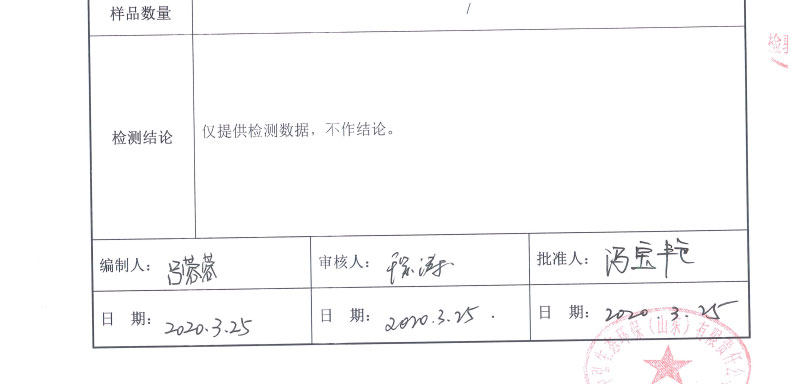 样品数量 /
检测结论 仅提供检测数据，不作结论。
编制人： 吕蓉蓉 审核人： 批准人： 冯宝艳
日 期： 2020.3.25 日 期： 2020.3.25. 日 期： 2020.3.25
生态环保（山东）有限责任公
检验